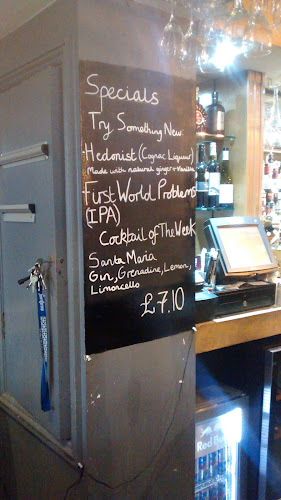 Specials
Try Something New:
Hedonist (Cognac Liqueur)
Made with natural ginger + Vanilla
First World Problems
(IPA)
Cocktail of The Week
Santa Maria
Gin, Grenadine, Lemon,
Limoncello
£7.10
Red Bull